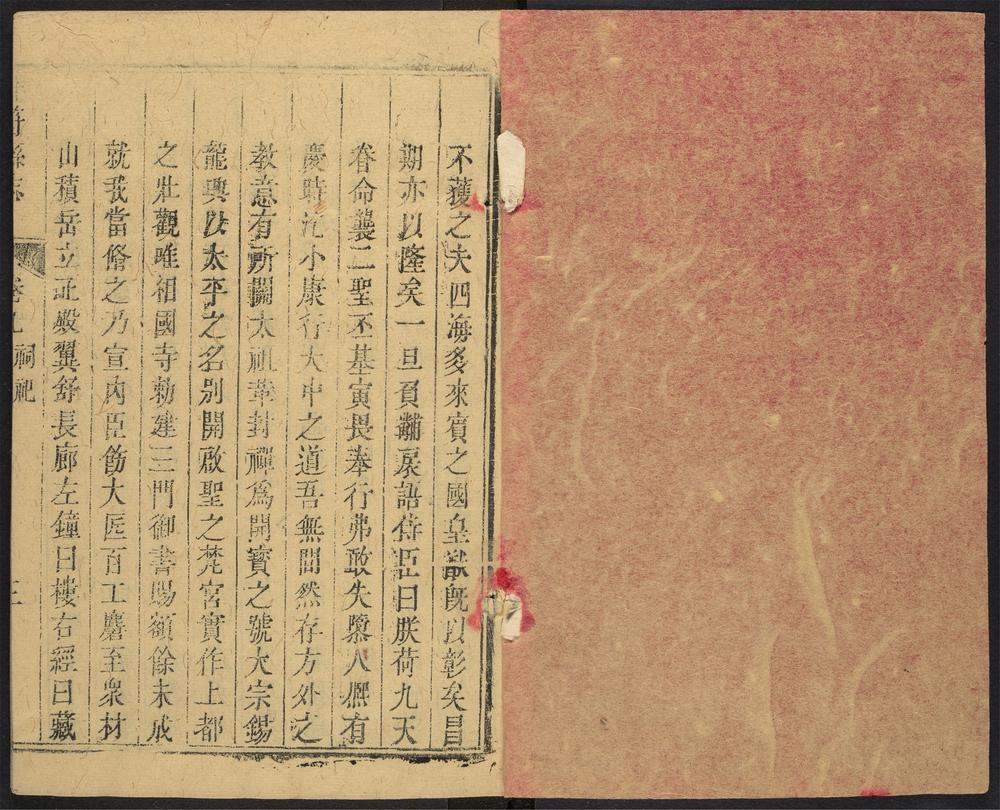 不獲之夫四海多來賓之國皇猷旣以彰矣昌
期亦以隆矣一旦頁黼扆語侍臣曰朕荷九天
眷命襲二聖丕基寅畏奉行弗敢失墜人熈有
慶時汔小康行大中之道吾無間然存方外之
教意有所闢太祖革封禪爲開寳之號太宗錫
龍興以太平之名别開啟聖之梵宮實作上都
之壯觀唯祖國寺勅建三門御書賜額餘未成
就我當脩之乃宣内臣飭大匠百工麕至衆材
山積岳立正殿翼舒長廊左鐘曰樓右經曰藏
符縣志 卷九 祠祀 三